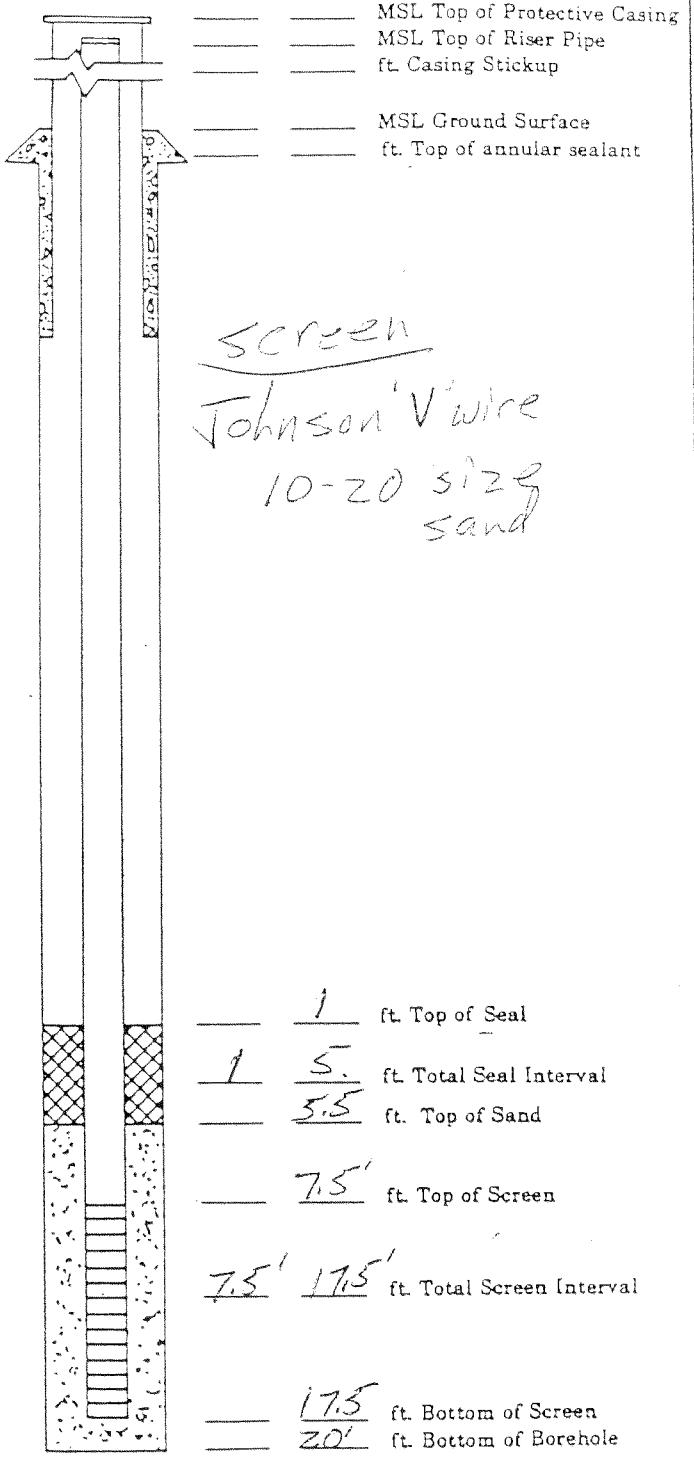 MSL Top of Protective Casing
MSL Top of Riser Pipe
ft. Casing Stickup
MSL Ground Surface
ft. Top of annular sealant
screen
Johnson 'V' wire
10-20 size
sand
1 ft. Top of Seal
1 5. ft. Total Seal Interval
5.5 ft. Top of Sand
7.5' ft. Top of Screen
7.5' 17.5' ft. Total Screen Interval
17.5 ft. Bottom of Screen
20' ft. Bottom of Borehole